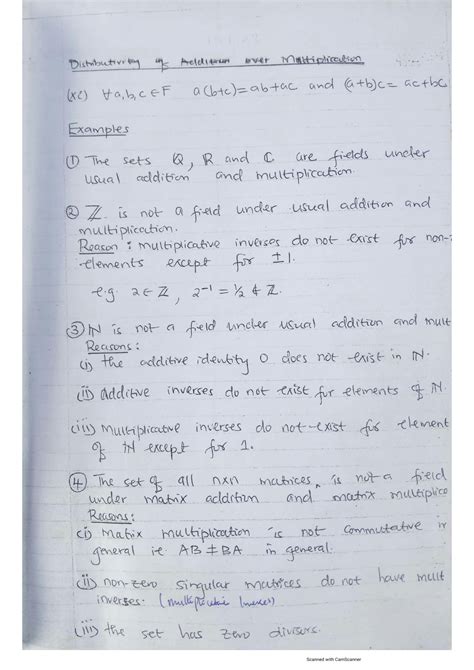 Distributivity of Addition over Multiplication
(xi) ∀a,b,c ∈ F a(b+c)=ab+ac and (a+b)c = ac+bc
Examples
① The sets Q, R and C are fields under
usual addition and multiplication.
② Z is not a field under usual addition and
multiplication.
Reason: multiplicative inverses do not exist for non-
elements except for ±1.
e.g. 2 ∈ Z, 2⁻¹ = ½ ∉ Z.
③ N is not a field under usual addition and mult
Reasons:
(i) the additive identity 0 does not exist in N.
(ii) Additive inverses do not exist for elements of N.
(iii) Multiplicative inverses do not exist for element
of N except for 1.
④ The set of all nxn matrices, is not a field
under matrix addition and matrix multiplica
Reasons:
(i) Matrix multiplication is not commutative in
general i.e AB ≠ BA in general.
(ii) non-zero singular matrices do not have mult
inverses. (multiplicative inverses)
(iii) the set has zero divisors.
Scanned with CamScanner